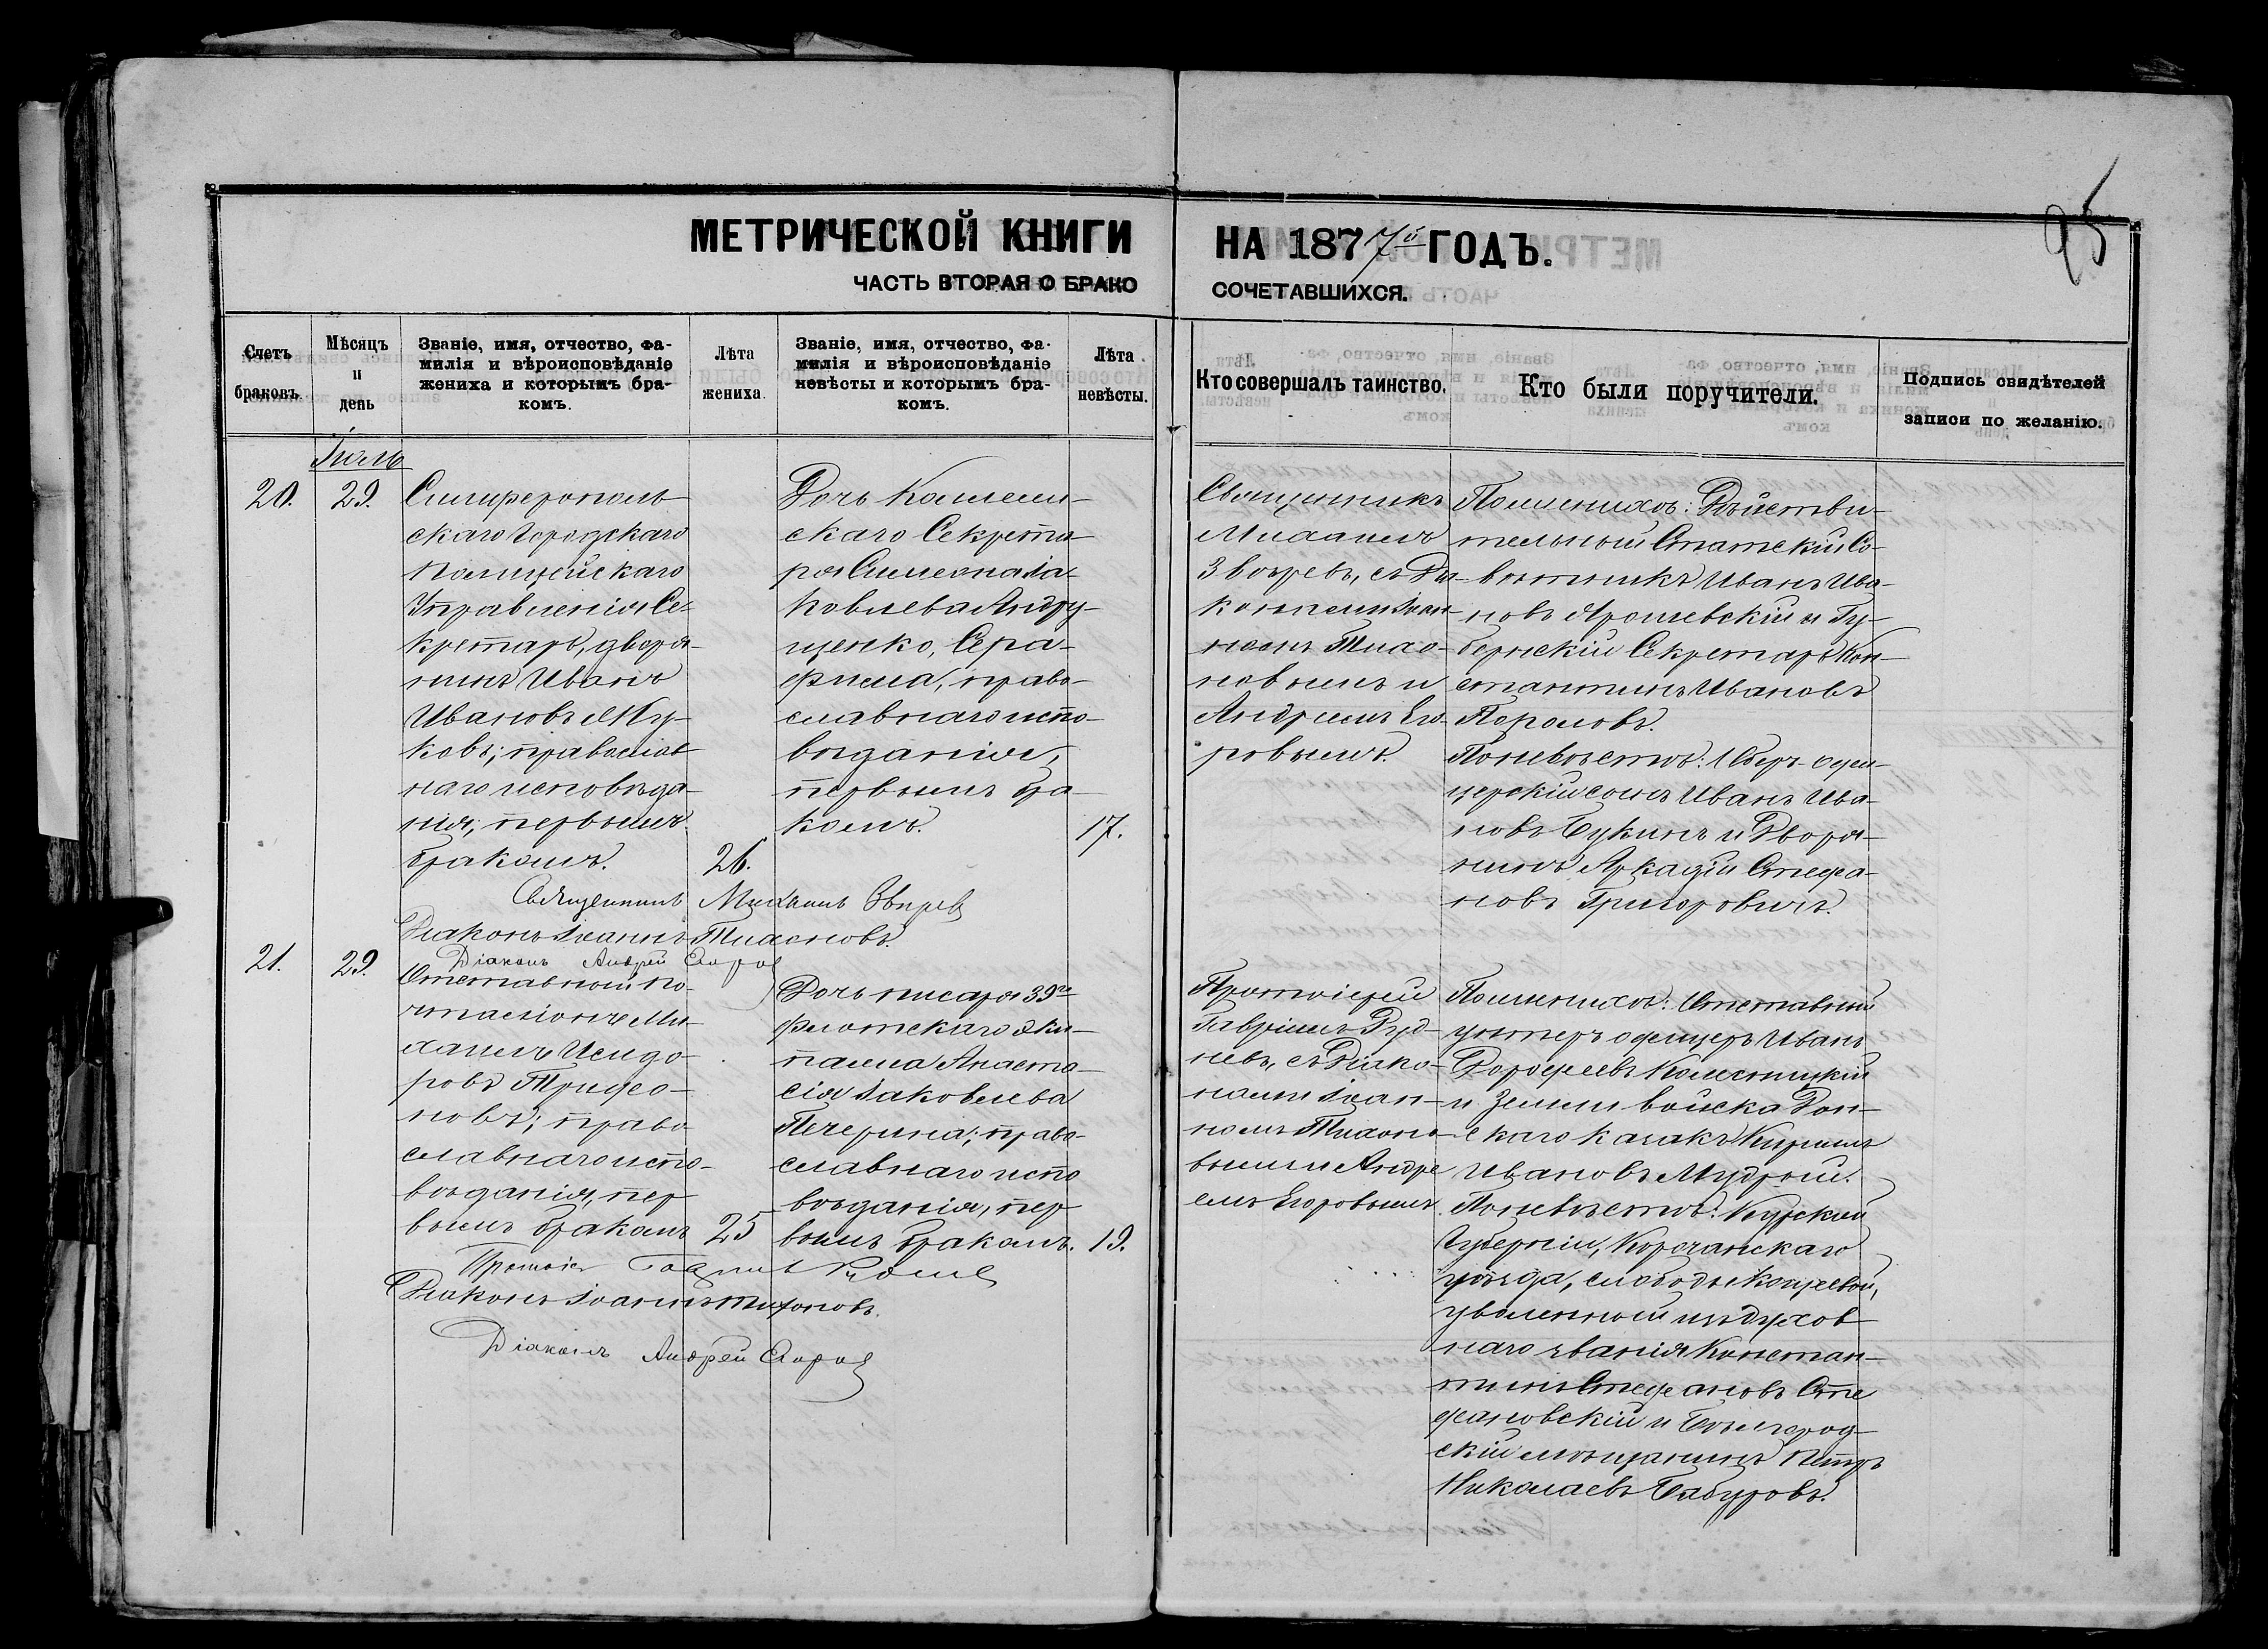 95
МЕТРИЧЕСКОЙ КНИГИ НА 1877й ГОДЪ.
ЧАСТЬ ВТОРАЯ О БРАКО СОЧЕТАВШИХСЯ.
Счетъ браковъ.
Мѣсяцъ и день
Званіе, имя, отчество, фа-
милія и вѣроисповѣданіе
жениха и которымъ бра-
комъ.
Лѣта жениха.
Званіе, имя, отчество, фа-
милія и вѣроисповѣданіе
невѣсты и которымъ бра-
комъ.
Лѣта невѣсты.
Кто совершалъ таинство.
Кто были поручители.
Подпись свидѣтелей
записи по желанію.
Іюль
20.
29.
Симферополь-
скаго Городскаго
Полицейскаго
Управленія Се-
кретарь, дворя-
нинъ Иванъ
Ивановъ
православ
наго исповѣда-
нія, первымъ
бракомъ.
26.
Дочь Коллеж-
скаго Секрета-
ря Симеона Іа-
ковлева Андру-
щенко, Сера-
фима, право-
славнаго испо-
вѣданія,
первымъ бра-
комъ.
17.
Священникъ
Михаилъ
Звѣревъ, съ Діа-
конами Іоан-
номъ Тихо-
новымъ и
Андреемъ Его-
ровымъ.
По женихѣ: Дѣйстви-
тельный Статскій Со-
вѣтникъ Иванъ Ива-
новъ Ярошевскій и Гу-
бернскій Секретарь Кон-
стантинъ Ивановъ
По невѣстѣ: Оберъ-офи-
церскій сынъ Иванъ Ива-
новъ Букинъ и Дворя-
нинъ Аркадій Стефа-
новъ Григоровичъ.
Священникъ Михаилъ Звѣревъ
Діаконъ Іоаннъ Тихоновъ.
Діаконъ Андрей Егоров
21.
29.
Отставной по-
чталіонъ Ми-
хаилъ Исидо-
ровъ Трифо-
новъ; право
славнаго испо-
вѣданія, пер
вымъ бракомъ
25
Дочь писаря 39го
флотскаго эки-
пажа Анаста-
сія Іаковлева
Печерина; право-
славнаго испо
вѣданія, пер
вымъ бракомъ.
19.
Протоіерей
Гавріилъ Руд-
невъ, съ Діако-
нами Іоан-
номъ Тихоно-
вымъ и Андре
емъ Егоровымъ.
По женихѣ: Отставный
унтеръ офицеръ Иванъ
Дорофеевъ Колесницкій
и Земли войска Дон-
скаго казакъ Кириллъ
Ивановъ Мудрый.
По невѣстѣ: Курской
Губерніи, Корочанскаго
уѣзда, слободы
уволенный изъ духов
наго званія Констан-
тинъ Стефановъ Сте
фановскій и Бѣлгород-
скій мѣщанинъ Петръ
Николаевъ Бабуровъ.
Протоіер Гавріил Руднев
Діаконъ Іоаннъ Тихоновъ.
Діаконъ Андрей Егоров